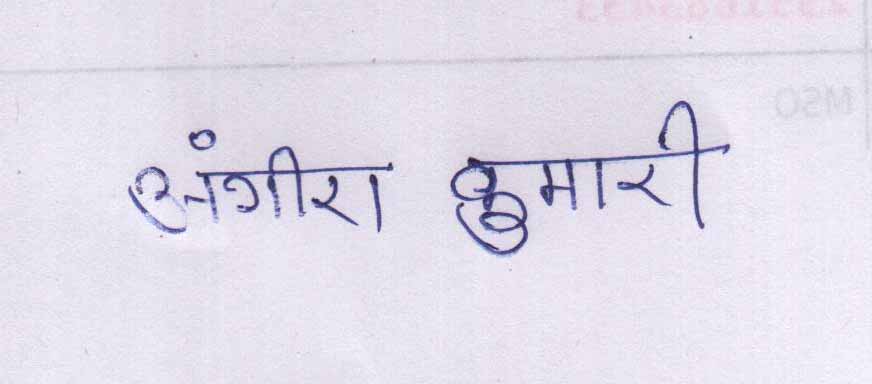 अंगीरा कुमारी